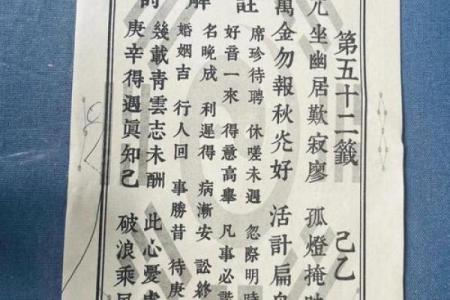 第五十二籤 己乙
兀坐幽居歎寂廖 孤燈掩
萬金勿報秋灮好 活計扁
註 席珍待聘 休嗟未遇 忽際明時
好音一來 得意高舉 凡事必諧
解 名晚成 利遲得 病漸安 訟終
婚姻吉 行人回 事勝昔 待庚
幾載青雲志未酬 此心憂
庚辛得遇眞知己 破浪乘